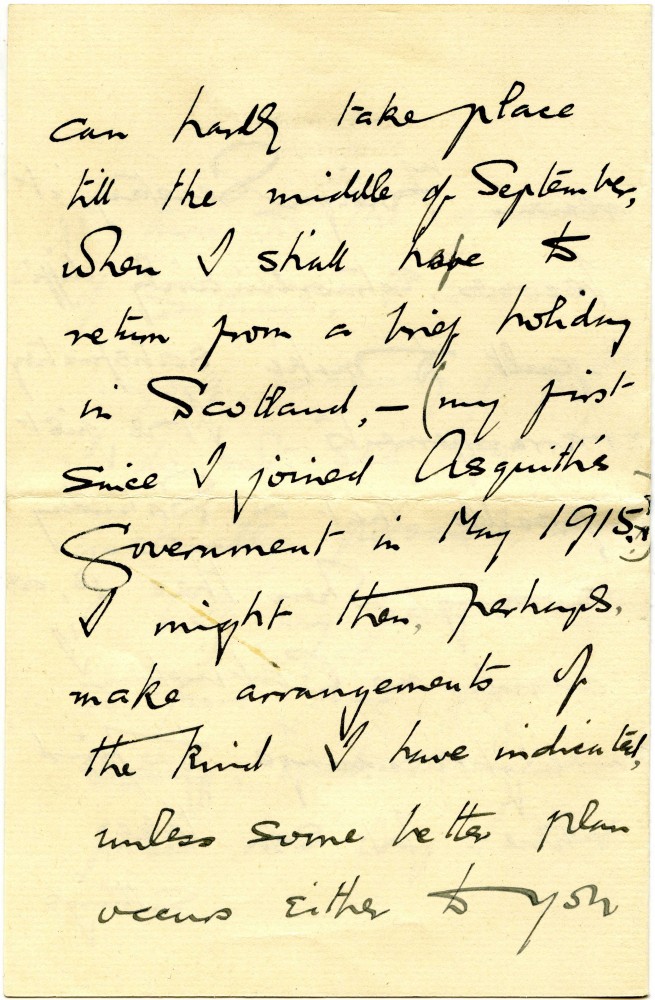 can hardly take place
till the middle of September,
when I shall hope to
return from a brief holiday
in Scotland, – (my first
since I joined Asquith's
Government in May 1915.)
I might then, perhaps,
make arrangements of
the kind I have indicated,
unless some better plan
occurs either to you